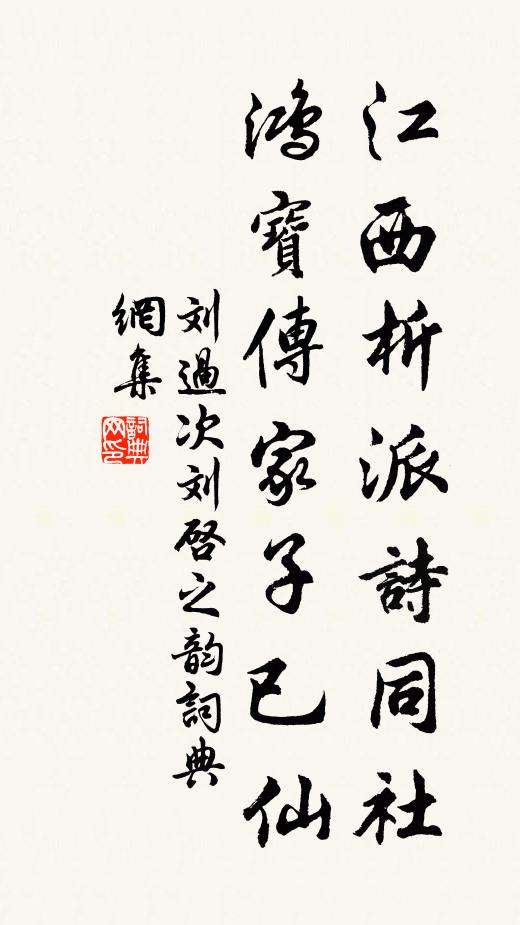 江西析派詩同社
鴻寶傳家子已仙
刘過次刘啓之韵詞典
網集
詞典网印